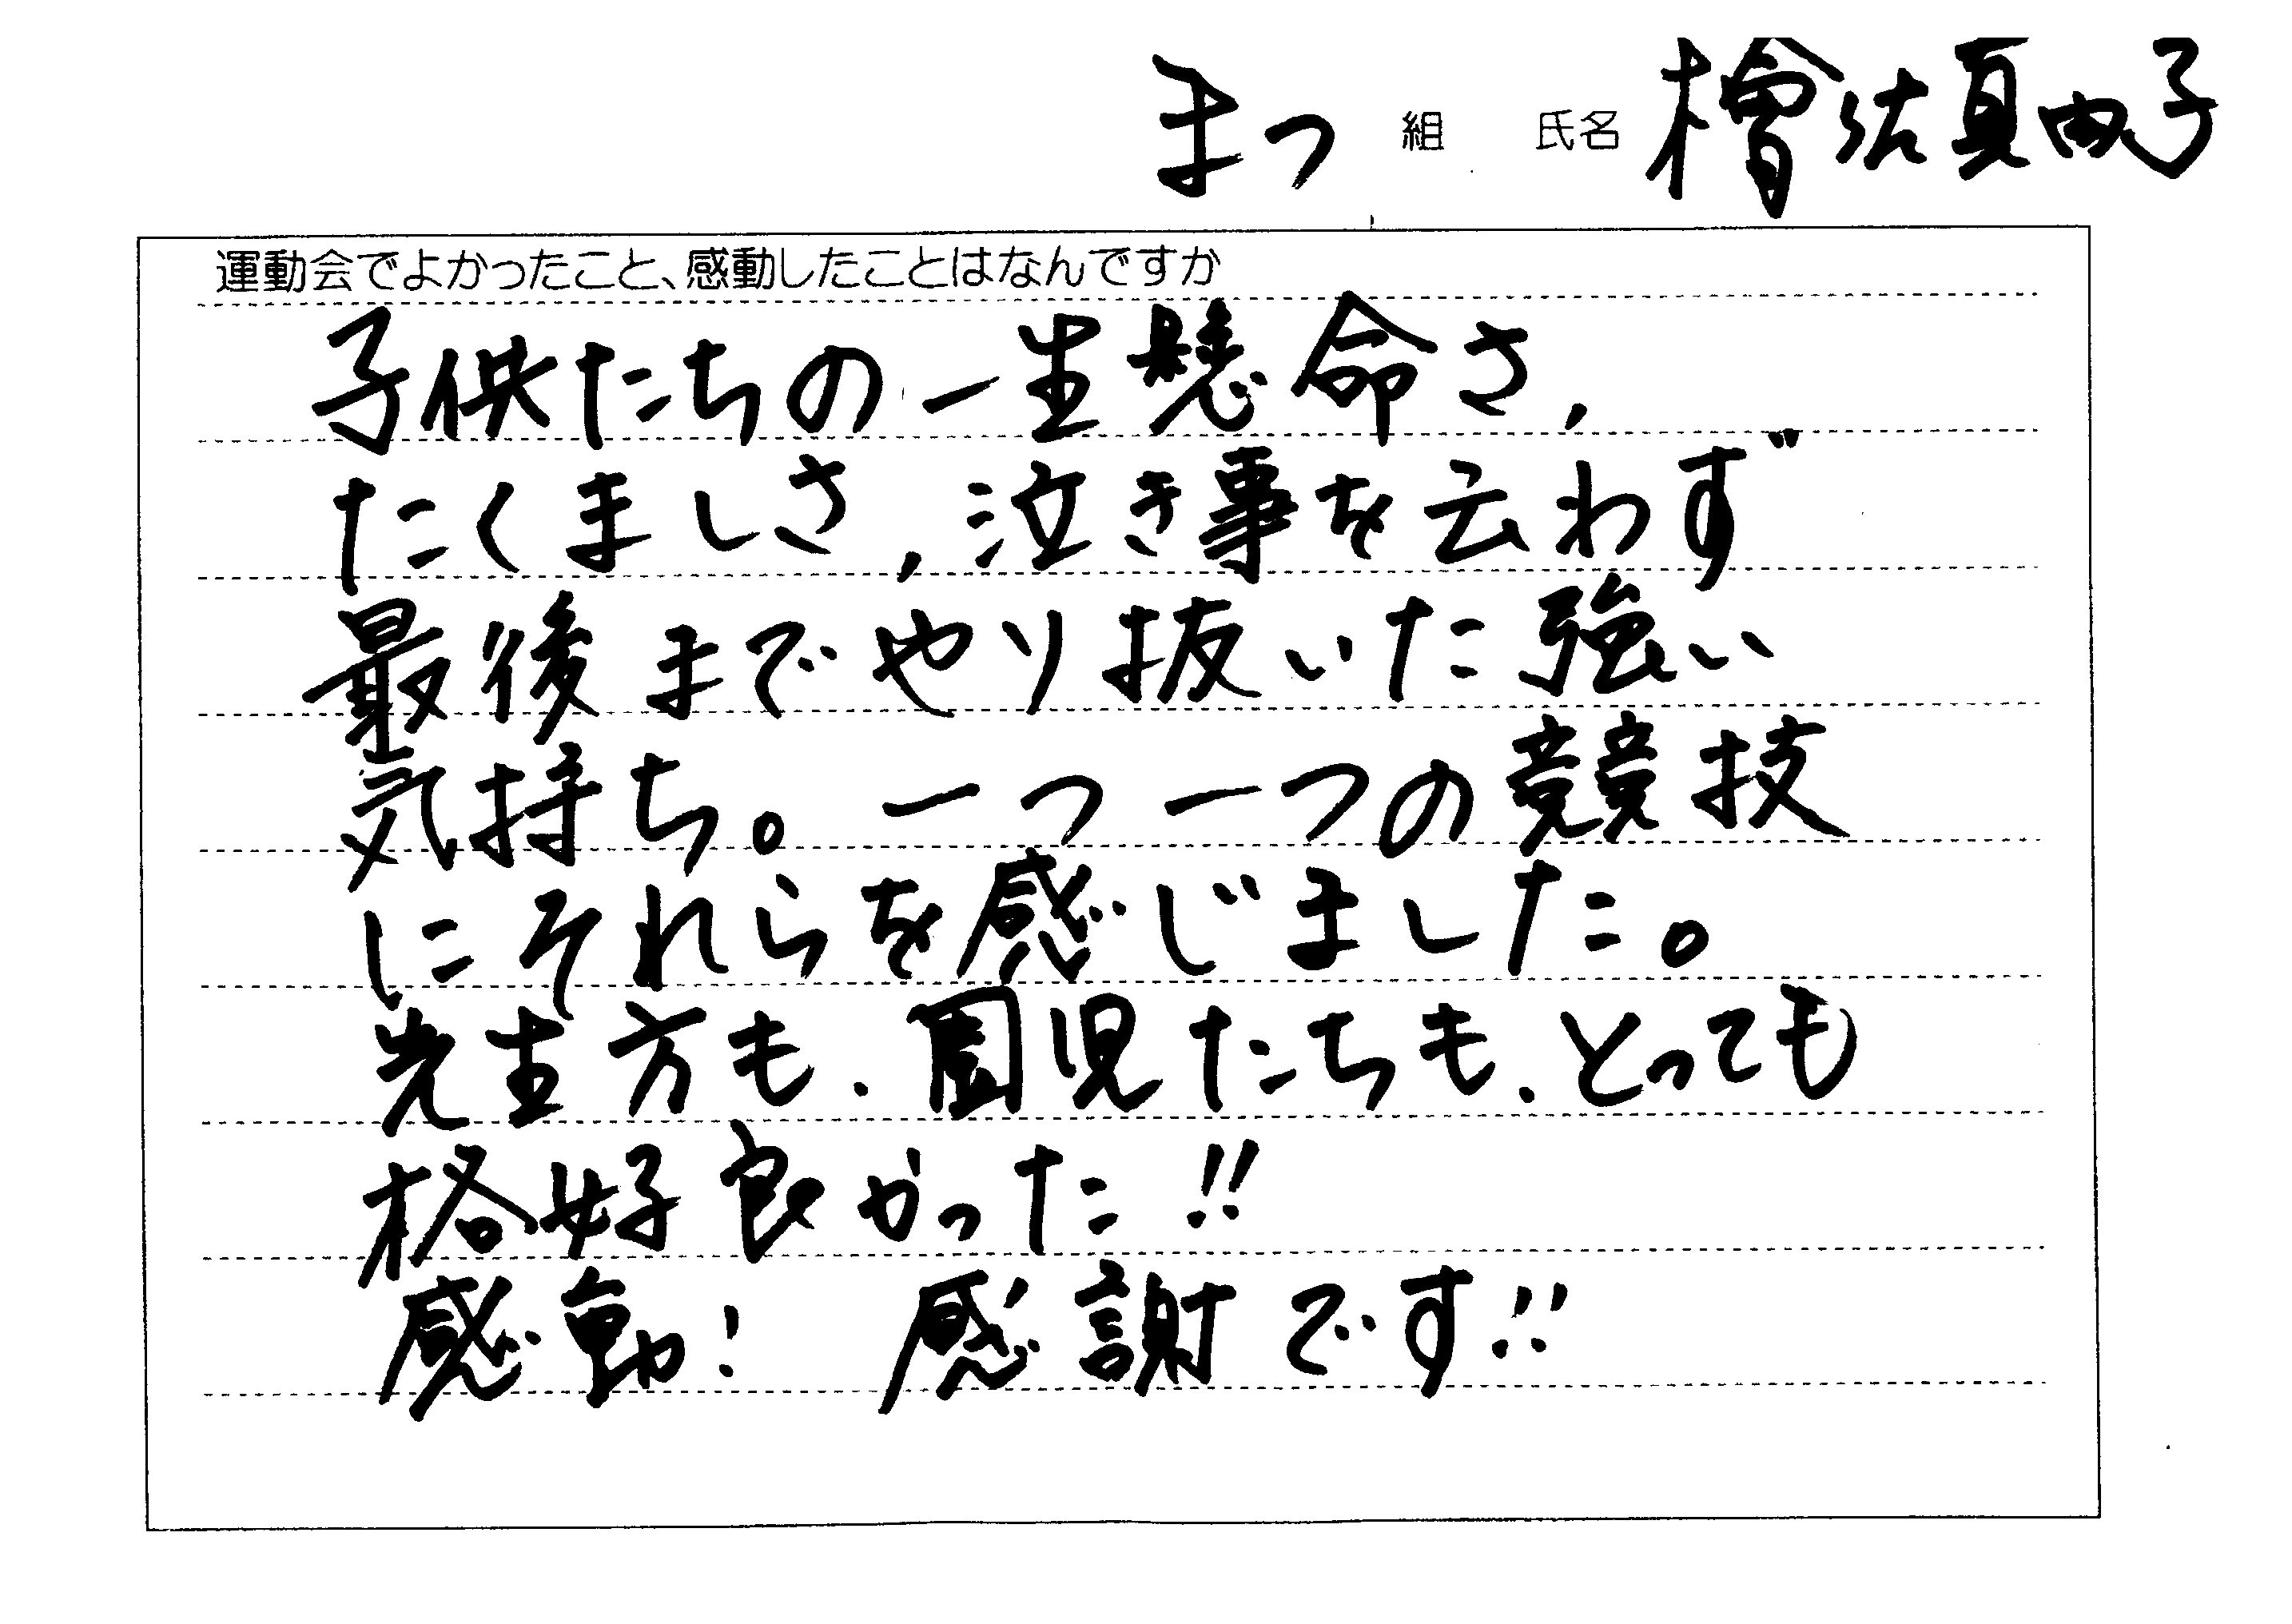 まつ 組 氏名 檜佐真由子
運動会でよかったこと、感動したことはなんですか
子供たちの一生懸命さ,
たくましさ,泣き事を云わず
最後までやり抜いた強い
気持ち。一つ一つの競技
にそれらを感じました。
先生方も、園児たちも、とっても
格好良かった!!
感動! 感謝です!!